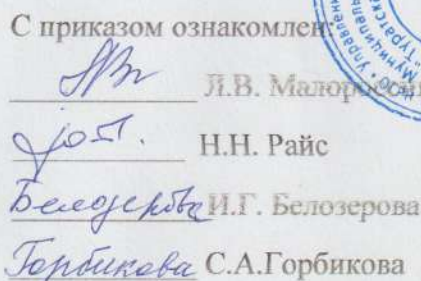 С приказом ознакомлен:
Л.В.
Н.Н. Райс
Белозерова И.Г. Белозерова
Горбикова С.А.Горбикова